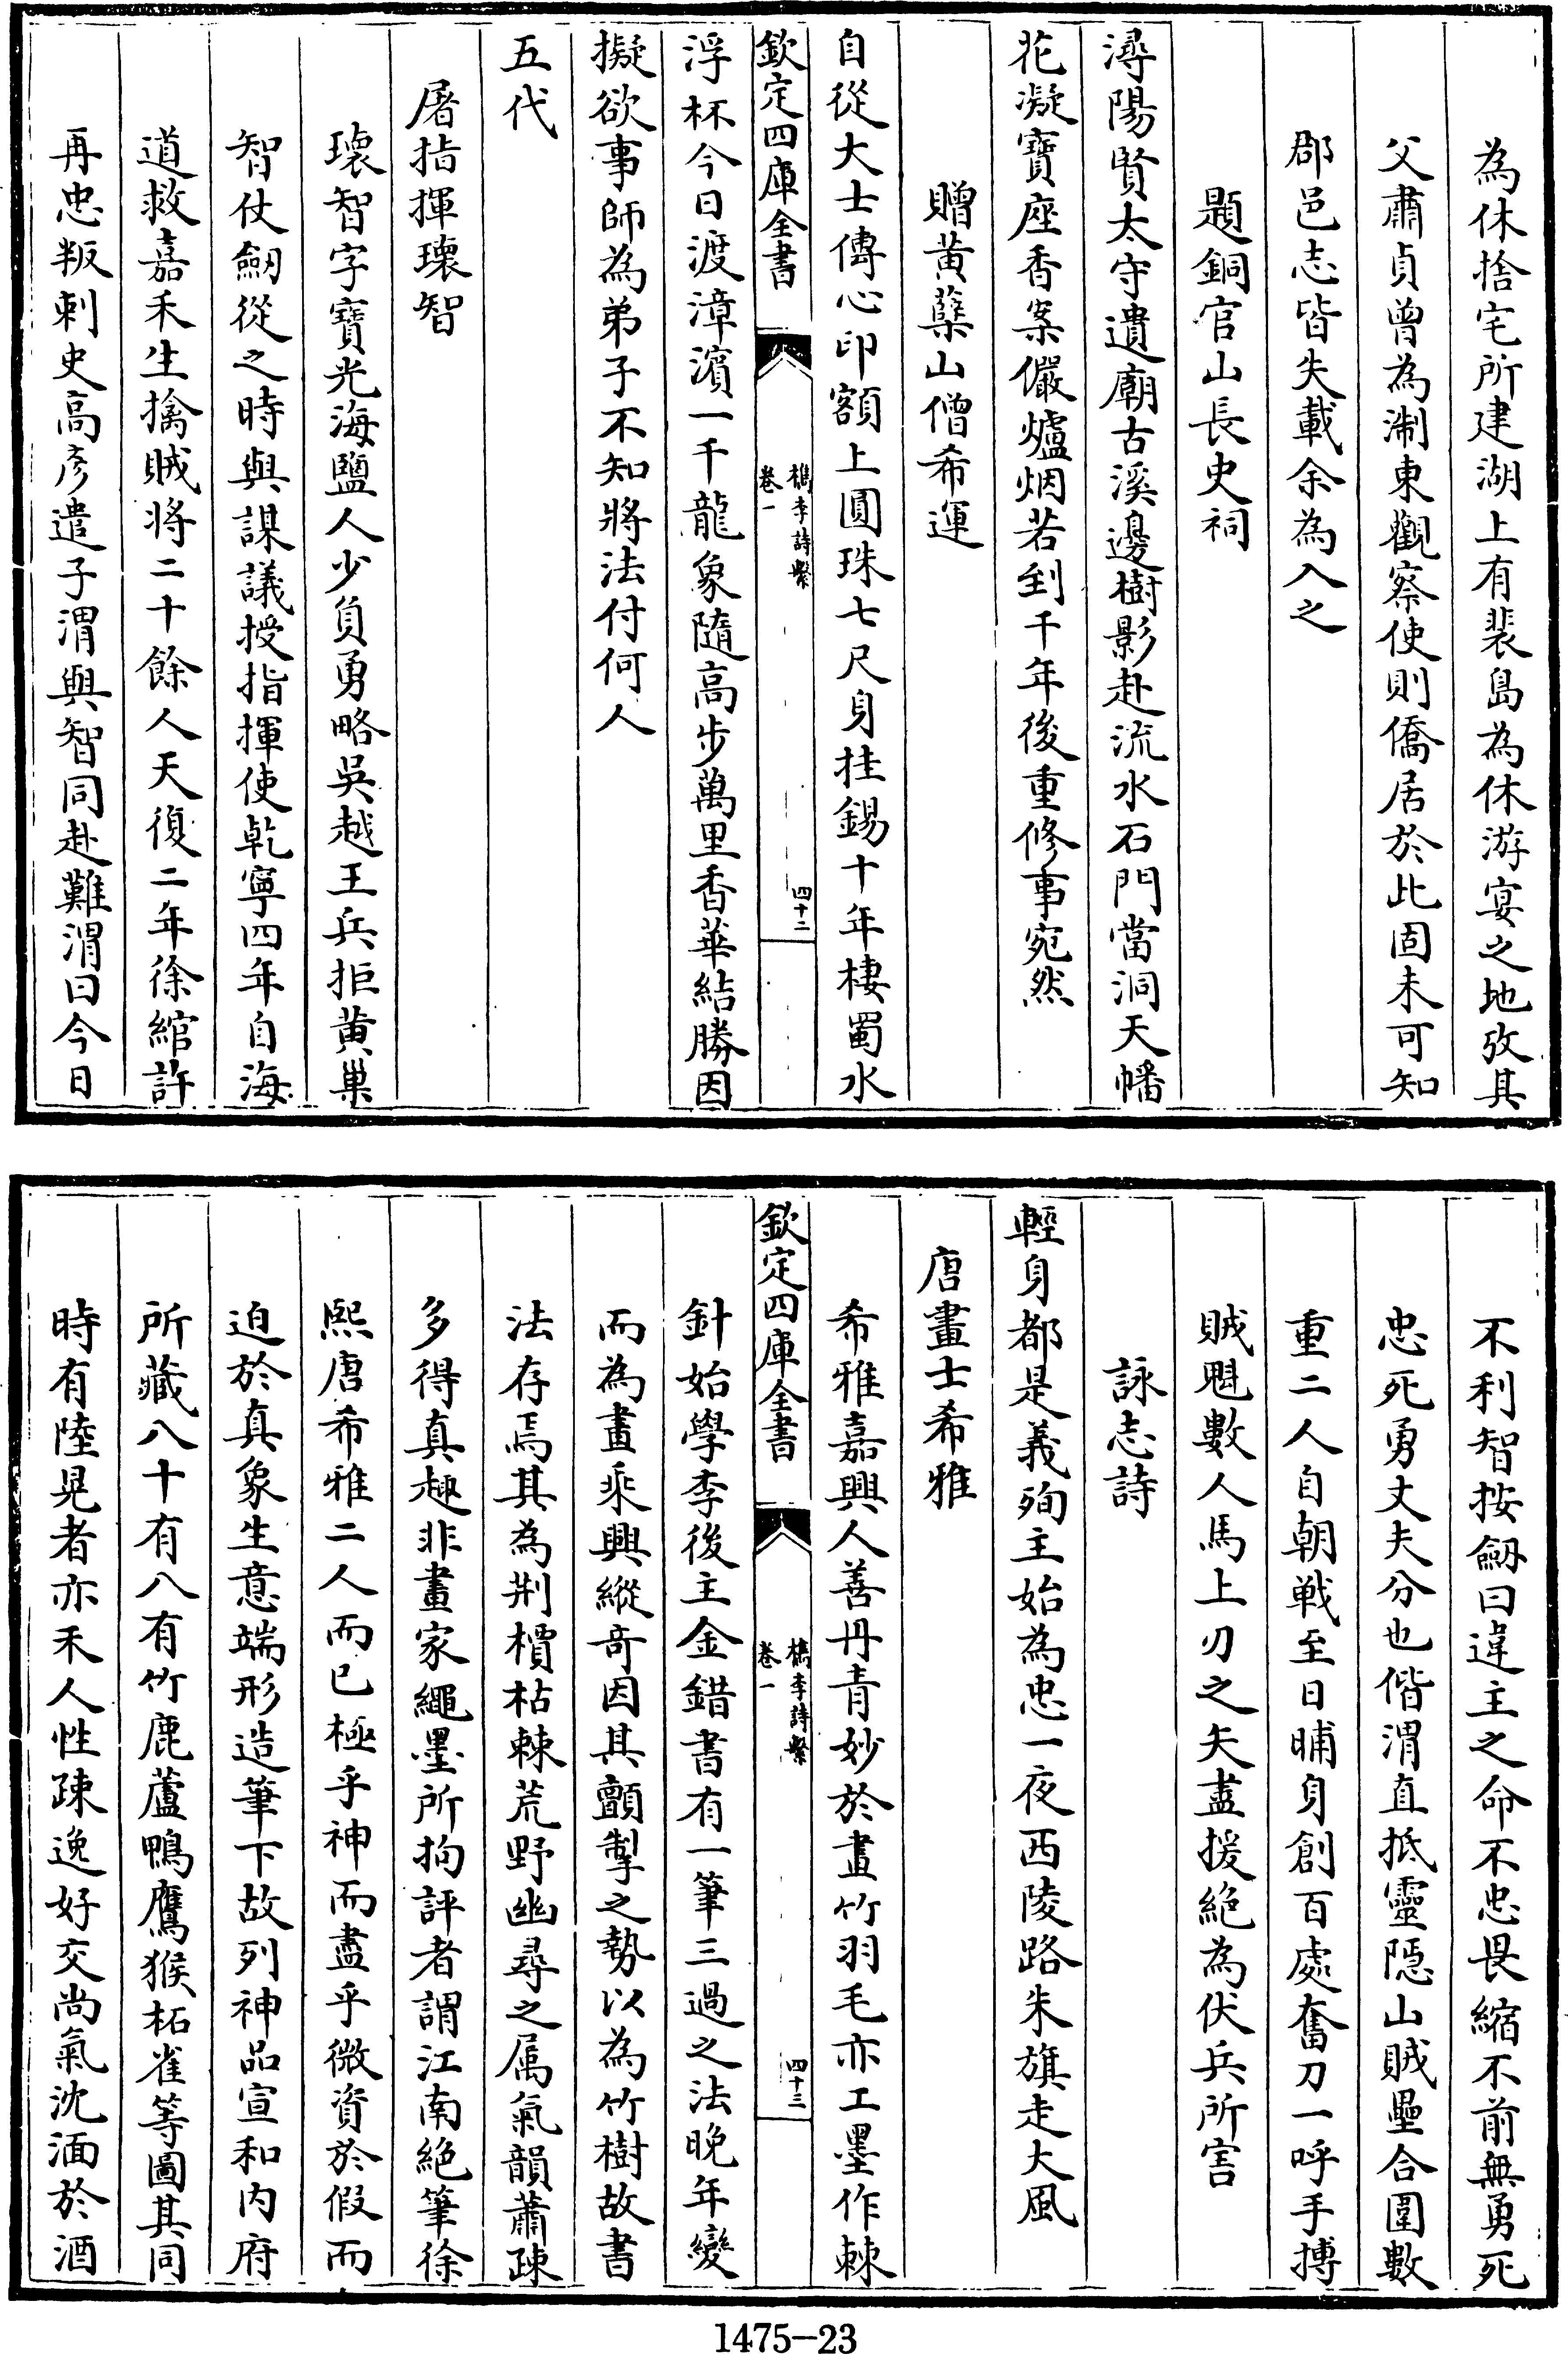 為休捨宅所建湖上有裴島為休游宴之地攷其
父肅貞曾為淛東觀察使則僑居於此固未可知
郡邑志皆失載余為入之
題銅官山長史祠
潯陽賢太守遺廟古溪邊樹影赴流水石門當洞天幡
花凝寶座香案儼爐烟若到千年後重修事宛然
贈黃蘖山僧希運
自從大士傳心印額上圓珠七尺身挂錫十年棲蜀水
欽定四庫全書
檇李詩繫
卷一
四十二
浮杯今日渡漳濱一千龍象隨高步萬里香華結勝因
擬欲事師為弟子不知將法付何人
五代
屠指揮瓌智
瓌智字寶光海鹽人少負勇略吳越王兵拒黃巢
智仗劒從之時與謀議授指揮使乾寧四年自海
道救嘉禾生擒賊將二十餘人天復二年徐綰許
再忠叛刺史高彥遣子渭與智同赴難渭曰今日
不利智按劒曰違主之命不忠畏縮不前無勇死
忠死勇丈夫分也偕渭直抵靈隱山賊壘合圍數
重二人自朝戰至日晡身創百處奮刀一呼手搏
賊魁數人馬上刃之矢盡援絕為伏兵所害
詠志詩
輕身都是義殉主始為忠一夜西陵路朱旗走大風
唐畫士希雅
希雅嘉興人善丹青妙於畫竹羽毛亦工墨作棘
欽定四庫全書
檇李詩繫
卷一
四十三
針始學李後主金錯書有一筆三過之法晚年變
而為畫乘興縱奇因其顫掣之勢以為竹樹故書
法存焉其為荆檟枯棘荒野幽尋之属氣韻蕭疎
多得真趣非畫家繩墨所拘評者謂江南絕筆徐
熙唐希雅二人而已極乎神而盡乎微資於假而
迫於真象生意端形造筆下故列神品宣和內府
所藏八十有八有竹鹿蘆鴨鷹猴柘雀等圖其同
時有陸晃者亦禾人性疎逸好交尚氣沈湎於酒
1475-23